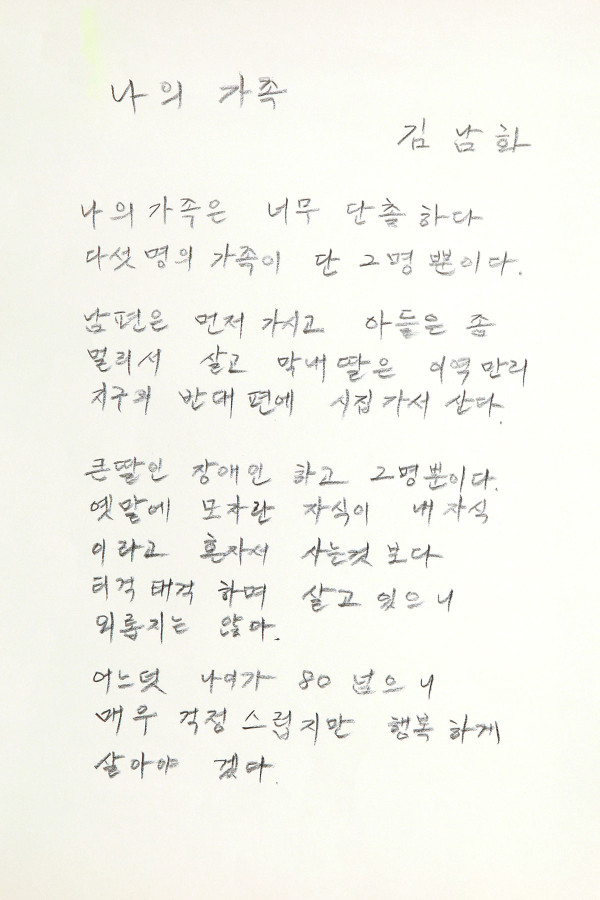 나의 가족
김남화
나의 가족은 너무 단촐하다
다섯명의 가족이 단 2명 뿐이다.
남편은 먼저 가시고 아들은 좀
멀리서 살고 막내딸은 이역만리
지구의 반대 편에 시집가서 산다.
큰딸인 장애인 하고 2명뿐이다.
옛말에 모자란 자식이 내자식
이라고 혼자서 사는것 보다
티격태격 하며 살고 있으니
외롭지는 않아.
어느덧 나이가 80 넘으니
매우 걱정스럽지만 행복하게
살아야 겠다.